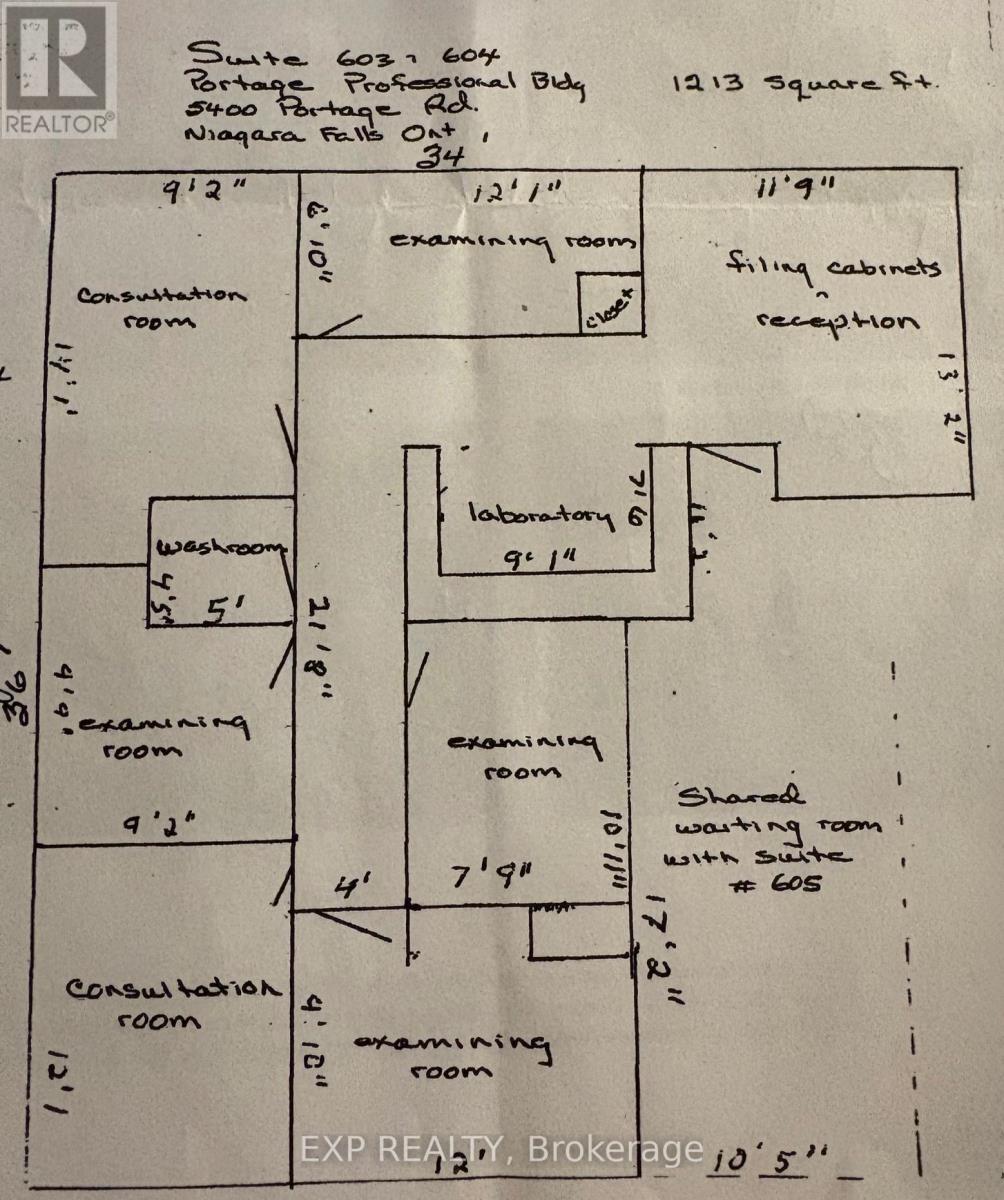 REALTOR®
Suite 603, 604
Portage Professional Bldg
1213 square ft.
5400 Portage Rd.
Niagara Falls Ont,
34
9'2"
12'1"
11'9"
6'10"
examining room
closet
filing cabinets
reception
consultation
room
14'1'
13'2"
laboratory
7'6
9'1"
11'2"
washroom
4'5"
5'
21'8"
36'
4'9'
examining
room
9'2"
examining
room
10'11"
7'9"
4'
Shared
waiting room
with suite
# 605
17'2"
Consultation
room
12'1
examining
room
12'
10'5"
EXP REALTY, Brokerage